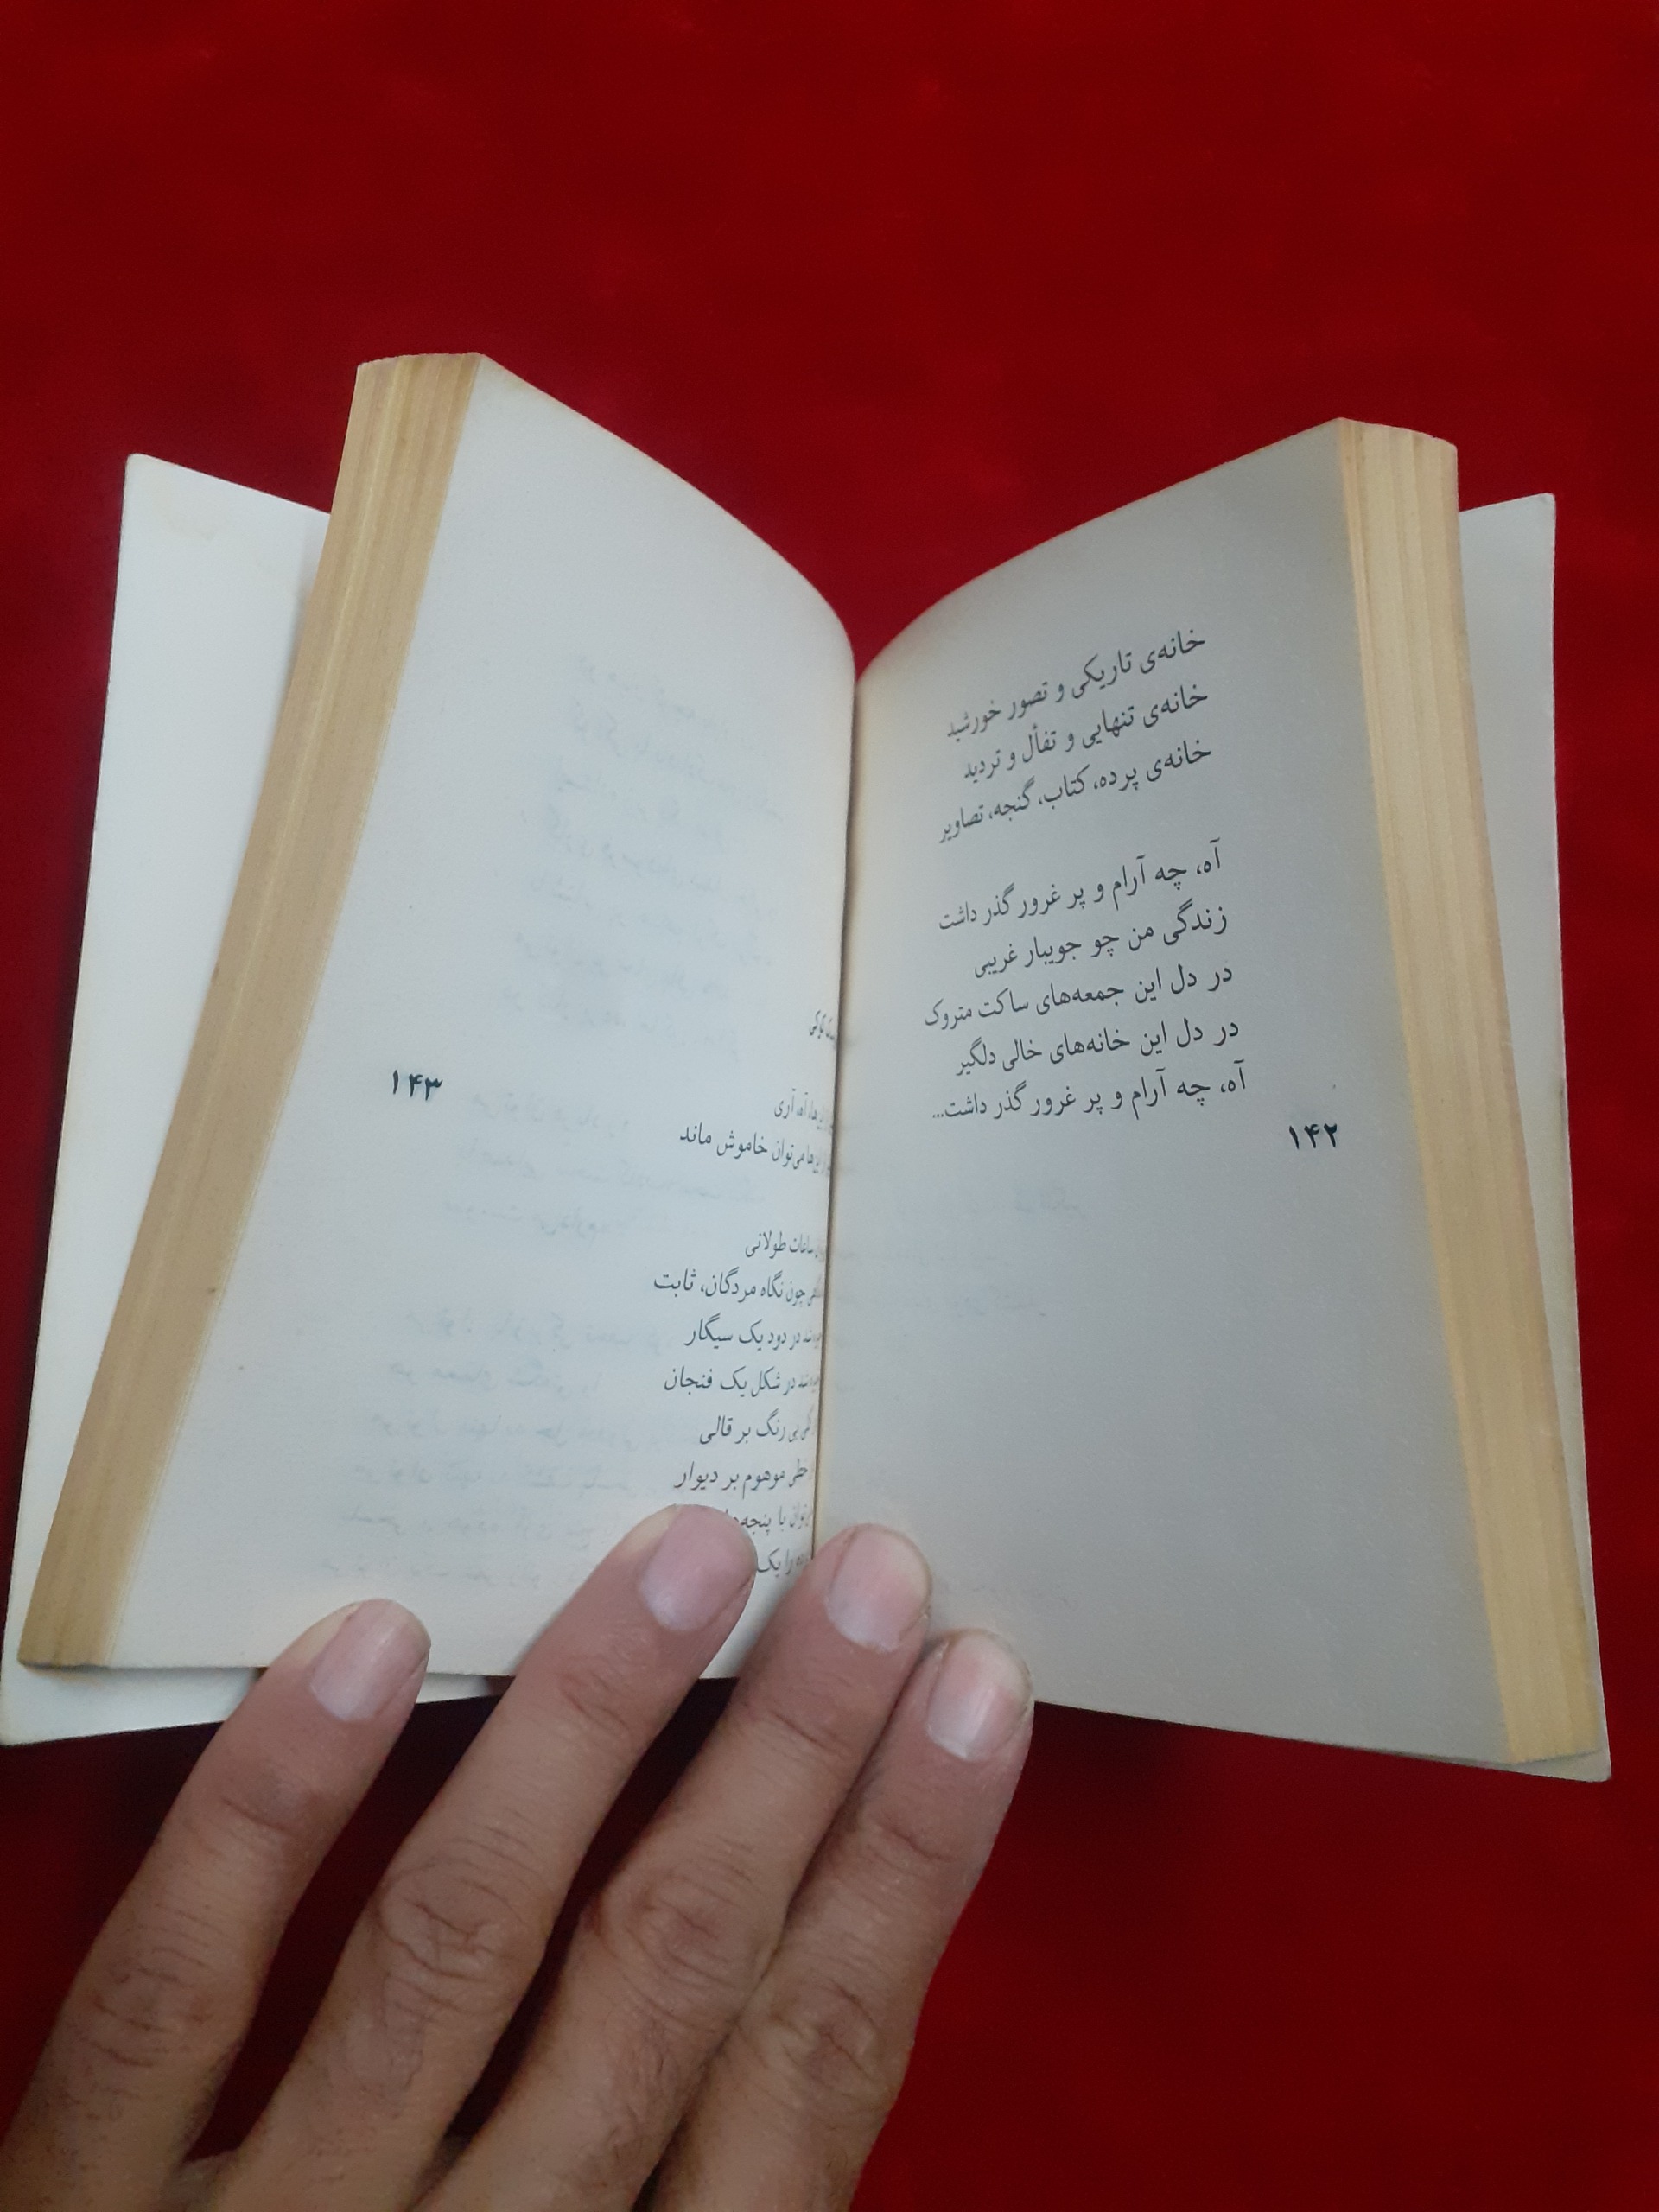 خانه‌ی تاریکی و تصور خورشید
خانه‌ی تنهایی و تفأل و تردید
خانه‌ی پرده، کتاب، گنجه، تصاویر
آه، چه آرام و پر غرور گذر داشت
زندگی من چو جویبار غریبی
در دل این جمعه‌های ساکت متروک
در دل این خانه‌های خالی دلگیر
آه، چه آرام و پر غرور گذر داشت...
۱۴۲
کوکی
آه، آری
می‌توان خاموش ماند
ساعات طولانی
چون نگاه مردگان، ثابت
در دود یک سیگار
در شکل یک فنجان
بی رنگ بر قالی
خطی موهوم بر دیوار
با پنجه‌های
را یک
۱۴۳